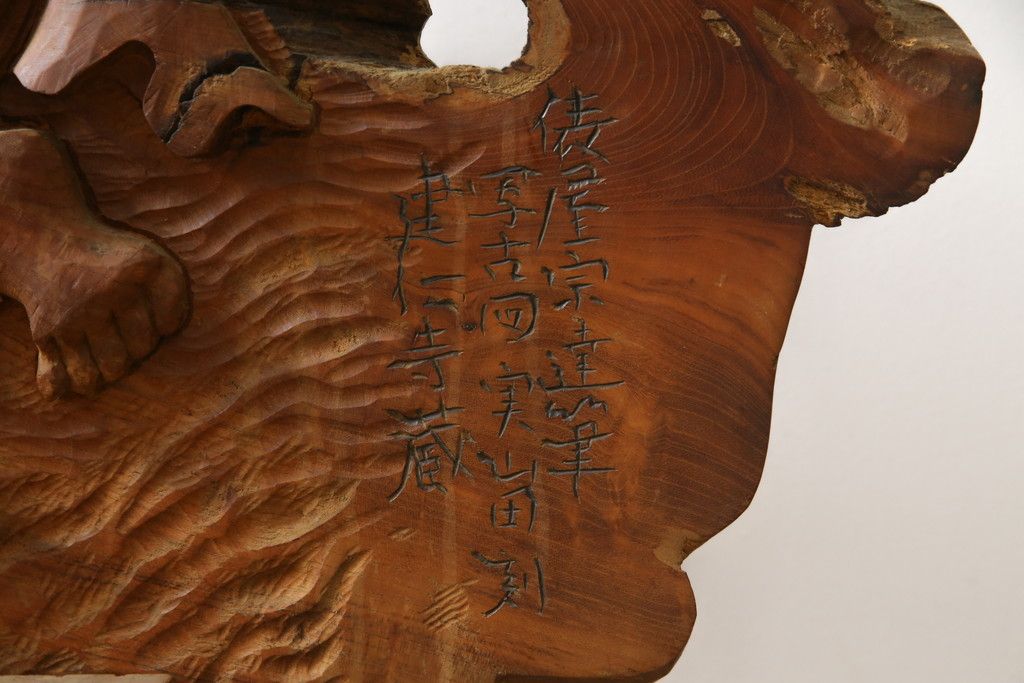 俵屋宗達筆
写古 実 刻
建仁寺蔵